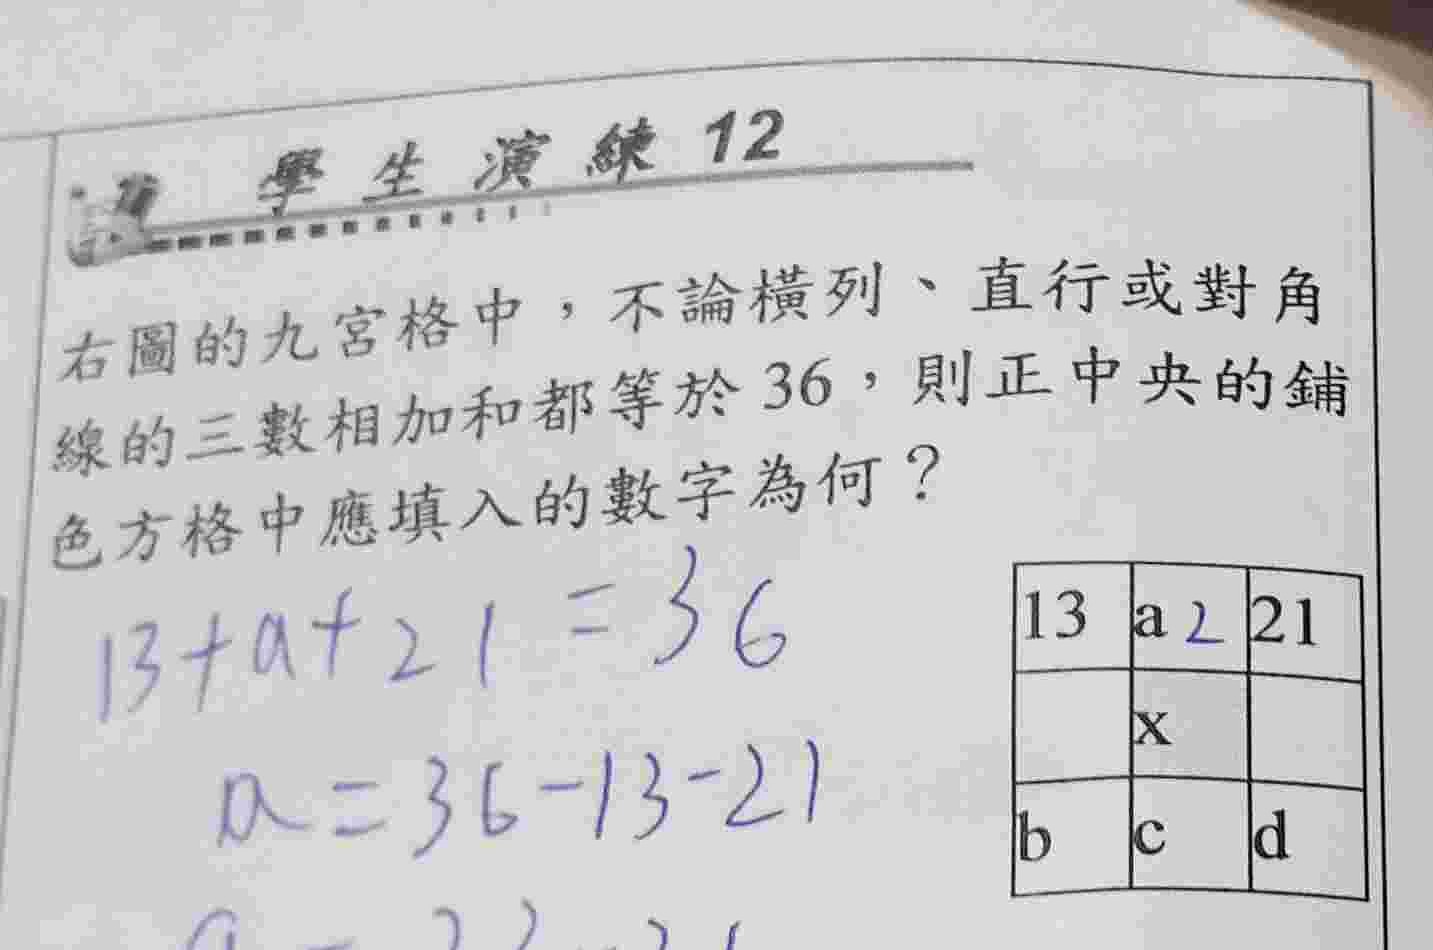 學生演練 12
右圖的九宮格中，不論橫列、直行或對角
線的三數相加和都等於 36，則正中央的鋪
色方格中應填入的數字為何？
13+a+21=36
a=36-13-21
13 a 2 21
x
b c d